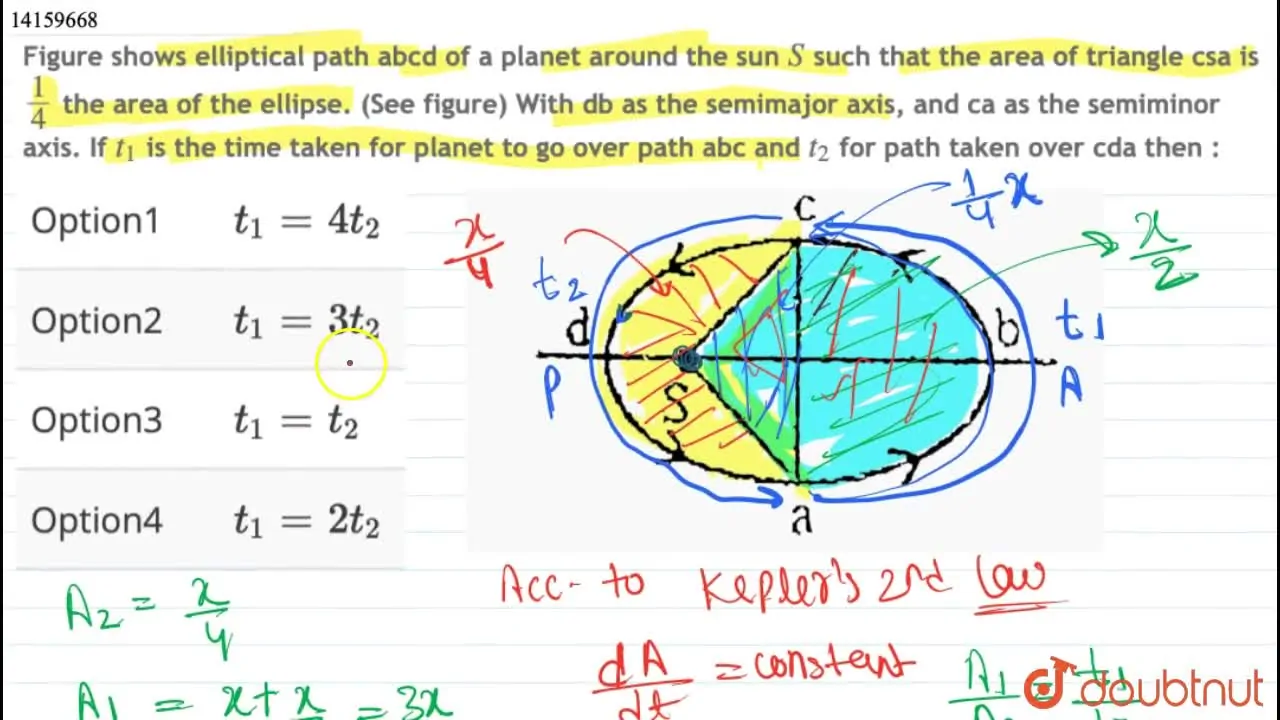 14159668
Figure shows elliptical path abcd of a planet around the sun S such that the area of triangle csa is
1/4 the area of the ellipse. (See figure) With db as the semimajor axis, and ca as the semiminor
axis. If t₁ is the time taken for planet to go over path abc and t₂ for path taken over cda then :
Option1 t₁ = 4t₂
Option2 t₁ = 3t₂
Option3 t₁ = t₂
Option4 t₁ = 2t₂
c
1/4 x
x/4
x/2
t2
t1
d
b
P
A
S
a
Acc- to Kepler's 2nd Law
A2 = x/4
dA/dt = constant
A1 = x + x = 3x
A1 = t1
doubtnut